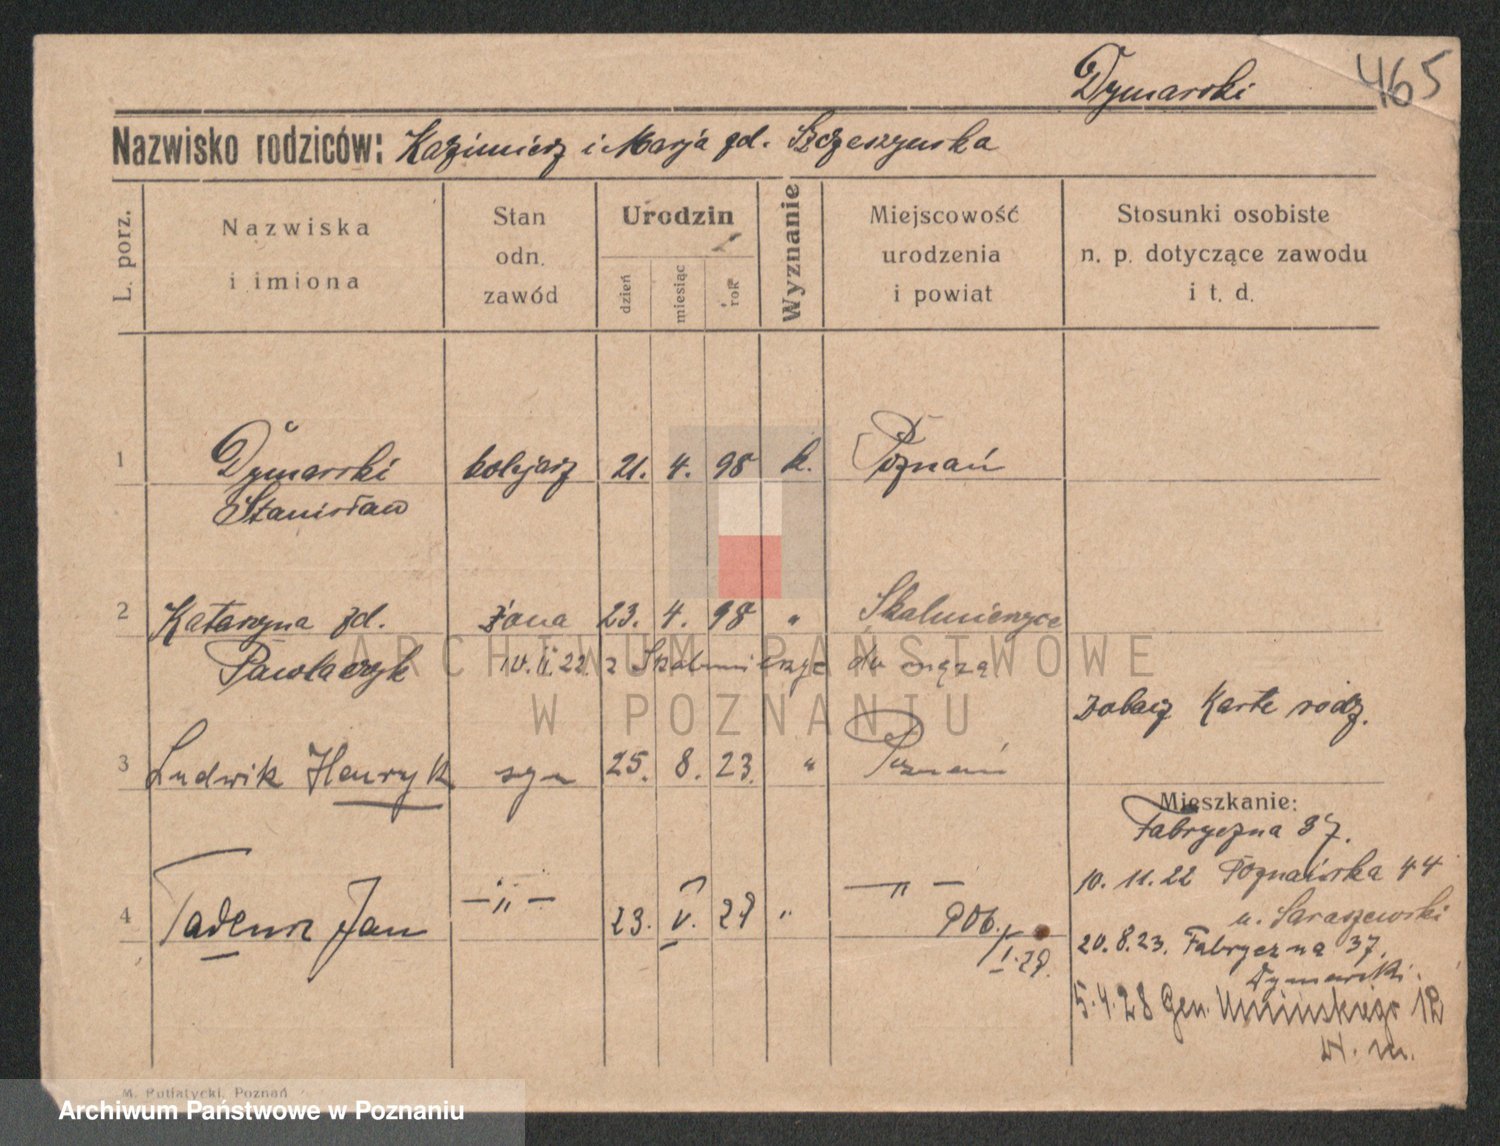 Dymarski 465
Nazwisko rodziców: Kazimierz i Marja zd. Szczeszyńska
L. porz.
Nazwiska
i imiona
Stan
odn.
zawód
Urodzin
dzień
miesiąc
rok
Wyznanie
Miejscowość
urodzenia
i powiat
Stosunki osobiste
n. p. dotyczące zawodu
i t. d.
1 Dymarski kolejarz 21. 4. 98 k. Poznań
Stanisław
2 Katarzyna zd. żona 23. 4. 98 " Skalmierzyce
Pawlaczyk 10. II. 22 z Skalmierzyc do męża
zobacz Karte rodz.
3 Ludwik Henryk syn 25. 8. 23. " Poznań
Mieszkanie:
Fabryczna 37.
10. 11. 22 Poznańska 44
u. Saraszewski
4 Tadeusz Jan —"— 23. V. 28 " —"—
906./I.29.
20. 8. 23. Fabryczna 37,
Dymarski.
5.4.28 Gen. Umińskiego 12
W. m.
M. Putiatycki, Poznań
ARCHIWUM PAŃSTWOWE
W POZNANIU
Archiwum Państwowe w Poznaniu